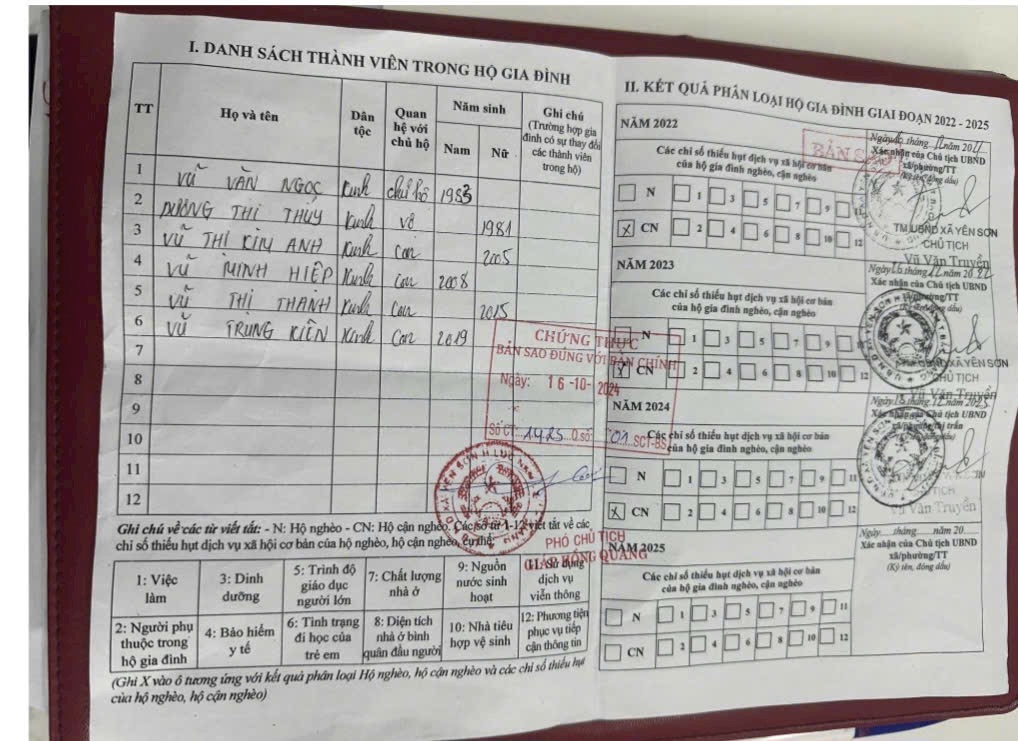 I. DANH SÁCH THÀNH VIÊN TRONG HỘ GIA ĐÌNH
TT
Họ và tên
Dân tộc
Quan hệ với chủ hộ
Năm sinh
Nam
Nữ
Ghi chú
(Trường hợp gia đình có sự thay đổi các thành viên trong hộ)
1 VŨ VĂN NGỌC Kinh chủ hộ 1983
2 DƯƠNG THỊ THÚY Kinh vợ 1981
3 VŨ THỊ KIM ANH Kinh Con 2005
4 VŨ MINH HIỆP Kinh Con 2008
5 VŨ THỊ THANH Kinh Con 2015
6 VŨ TRUNG KIÊN Kinh Con 2019
7
8
9
10
11
12
CHỨNG THỰC
BẢN SAO ĐÚNG VỚI BẢN CHÍNH
Ngày: 16-10-2024
Số CT: 1425 Q.số: 01 SCT-BS
PHÓ CHỦ TỊCH
GIÁP HỒNG QUANG
Ghi chú về các từ viết tắt: - N: Hộ nghèo - CN: Hộ cận nghèo. Các số từ 1-12 viết tắt về các
chỉ số thiếu hụt dịch vụ xã hội cơ bản của hộ nghèo, hộ cận nghèo, cụ thể:
1: Việc làm
3: Dinh dưỡng
5: Trình độ giáo dục người lớn
7: Chất lượng nhà ở
9: Nguồn nước sinh hoạt
11: Sử dụng dịch vụ viễn thông
2: Người phụ thuộc trong hộ gia đình
4: Bảo hiểm y tế
6: Tình trạng đi học của trẻ em
8: Diện tích nhà ở bình quân đầu người
10: Nhà tiêu hợp vệ sinh
12: Phương tiện phục vụ tiếp cận thông tin
(Ghi X vào ô tương ứng với kết quả phân loại Hộ nghèo, hộ cận nghèo và các chỉ số thiếu hụt
của hộ nghèo, hộ cận nghèo)
II. KẾT QUẢ PHÂN LOẠI HỘ GIA ĐÌNH GIAI ĐOẠN 2022 - 2025
BẢN SAO
NĂM 2022
Các chỉ số thiếu hụt dịch vụ xã hội cơ bản
của hộ gia đình nghèo, cận nghèo
N 1 3 5 7 9 11
X CN 2 4 6 8 10 12
Xác nhận của Chủ tịch UBND
xã/phường/TT
(Ký tên, đóng dấu)
TM UBND XÃ YÊN SƠN
CHỦ TỊCH
Vũ Văn Truyền
NĂM 2023
Các chỉ số thiếu hụt dịch vụ xã hội cơ bản
của hộ gia đình nghèo, cận nghèo
N 1 3 5 7 9 11
X CN 2 4 6 8 10 12
Ngày 16 tháng 12 năm 2022
Xác nhận của Chủ tịch UBND
xã/phường/TT
XÃ YÊN SƠN
CHỦ TỊCH
Vũ Văn Truyền
NĂM 2024
Các chỉ số thiếu hụt dịch vụ xã hội cơ bản
của hộ gia đình nghèo, cận nghèo
N 1 3 5 7 9 11
X CN 2 4 6 8 10 12
năm 2023
Xác nhận của Chủ tịch UBND
xã/phường/thị trấn
Vũ Văn Truyền
NĂM 2025
Các chỉ số thiếu hụt dịch vụ xã hội cơ bản
của hộ gia đình nghèo, cận nghèo
N 1 3 5 7 9 11
CN 2 4 6 8 10 12
Ngày tháng năm 20
Xác nhận của Chủ tịch UBND
xã/phường/TT
(Ký tên, đóng dấu)